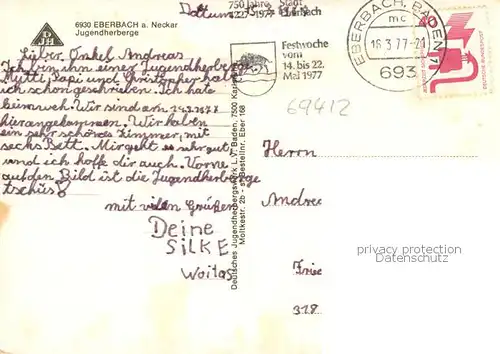 6930 EBERBACH a. Neckar
Jugendherberge
DJH
Dattum
Lieber Onkel Andreas
Ich bin ihn einer Jugendherberge
Mutti, Papi und Christopher habe
ich schon geschrieben. Ich habe
heimweh. Wir sind am
hierangekommen. Wir haben
ein sehr schönes Zimmer, mit
sechs Bett. Mir geht es sehr gut
und ich hoffe dir auch. Vorne
auf den Bild ist die Jugendherberge
tschüs
mit vielen Grüßen
Deine
SILKE
Woitas
Deutsches Jugendherbergswerk L.V. Baden, 7500 Karlsruhe
Moltkestr. 2b - Bestellnr. Eber 168
750 Jahre Stadt
1227-1977 Eberbach
Festwoche
vom
14. bis 22.
Mai 1977
EBERBACH, BADEN
mc
18.3.77-21
693
40
69412
Herrn
Andre
Frie
318
privacy protection
privacy protection